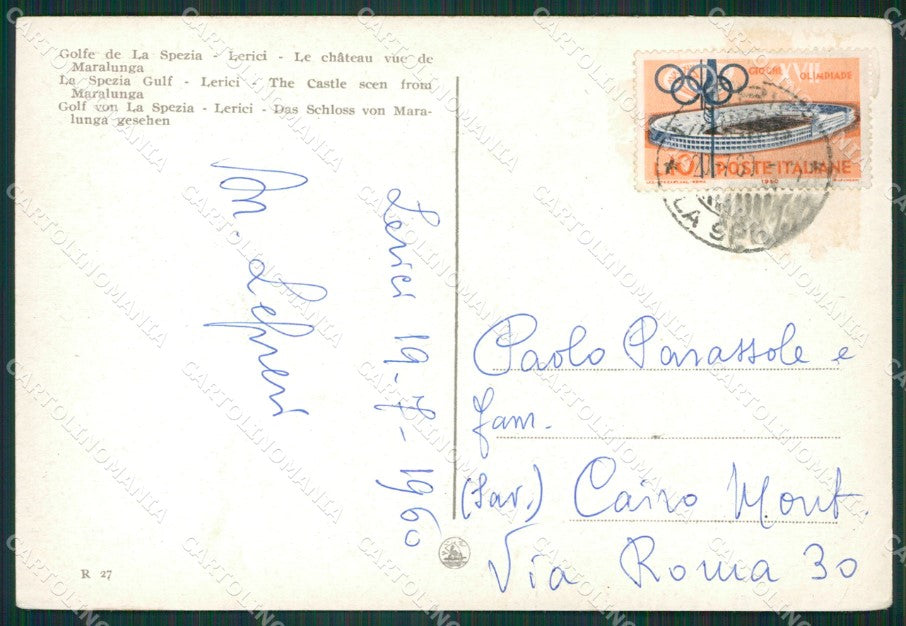 Golfe de La Spezia - Lerici - Le château vue de
Maralunga
La Spezia Gulf - Lerici - The Castle seen from
Maralunga
Golf von La Spezia - Lerici - Das Schloss von Mara-
lunga gesehen
Lerici 19-7-1960
R 27
GIOCHI XVII OLIMPIADE
POSTE ITALIANE
1960
LA SPEZ
Paolo Parassole e
fam.
(Sav.) Cairo Mont.
Via Roma 30
CARTOLINOMANIA